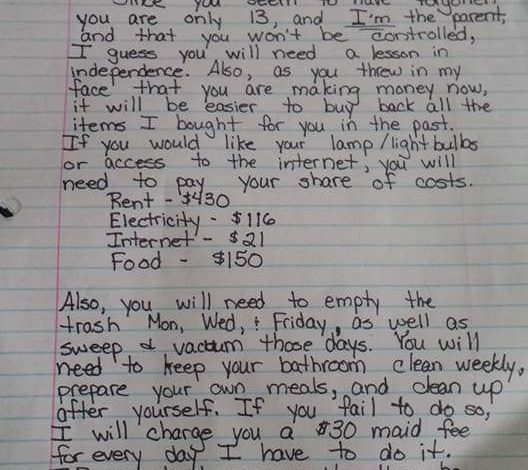 Since you seem to have forgotten
you are only 13, and I'm the parent,
and that you won't be controlled,
I guess you will need a lesson in
independence. Also, as you threw in my
face that you are making money now,
it will be easier to buy back all the
items I bought for you in the past.
If you would like your lamp/lightbulbs
or access to the internet, you will
need to pay your share of costs.
Rent - $430
Electricity - $116
Internet - $21
Food - $150
Also, you will need to empty the
trash Mon, Wed, & Friday, as well as
sweep & vacuum those days. You will
need to keep your bathroom clean weekly,
prepare your own meals, and clean up
after yourself. If you fail to do so,
I will charge you a $30 maid fee
for every day I have to do it.